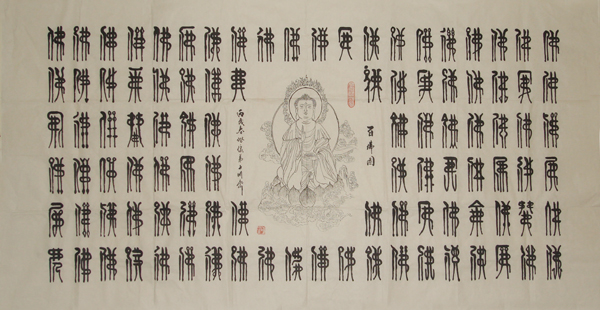 佛佛佛佛佛佛佛佛佛佛佛佛佛佛佛佛佛佛佛佛
佛佛佛佛佛佛佛佛佛佛佛佛佛佛佛佛
佛佛佛佛佛佛佛佛佛佛佛佛佛佛
佛佛佛佛佛佛佛佛佛佛佛佛佛佛
佛佛佛佛佛佛佛佛佛佛佛佛佛佛佛佛
佛佛佛佛佛佛佛佛佛佛佛佛佛佛佛佛佛佛佛佛
百佛圖
丙戌春